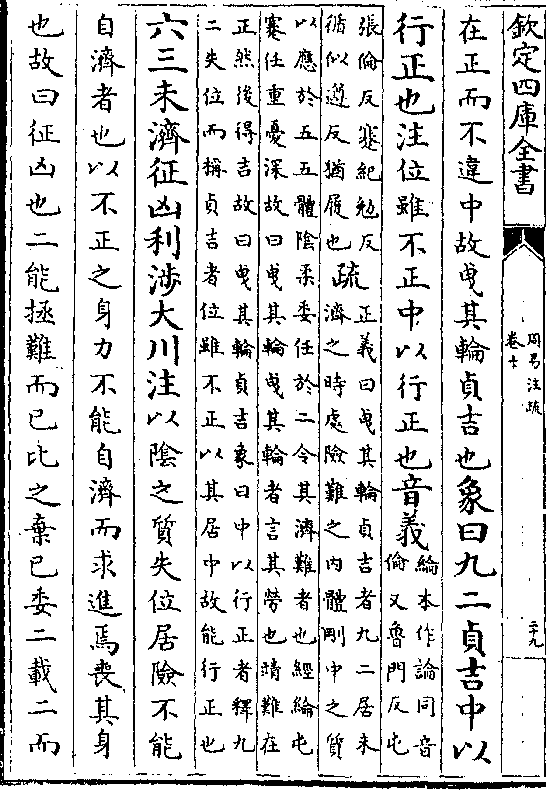 欽定四庫全書
周易注疏
卷十
二十九
在正而不違中故曳其輪貞吉也象曰九二貞吉中以
行正也注位雖不正中以行正也音義
綸本作論同音
倫又魯門反屯
張倫反蹇紀勉反
循似遵反猶履也
疏
正義曰曳其輪貞吉者九二居未
濟之時處險難之内體剛中之質
以應於五五體陰柔委任於二令其濟難者也經綸屯
蹇任重憂深故曰曳其輪曳其輪者言其勞也靖難在
正然後得吉故曰曳其輪貞吉象曰中以行正者釋九
二失位而稱貞吉者位雖不正以其居中故能行正也
六三未濟征凶利涉大川注以陰之質失位居險不能
自濟者也以不正之身力不能自濟而求進焉喪其身
也故曰征凶也二能拯難而已比之棄已委二載二而